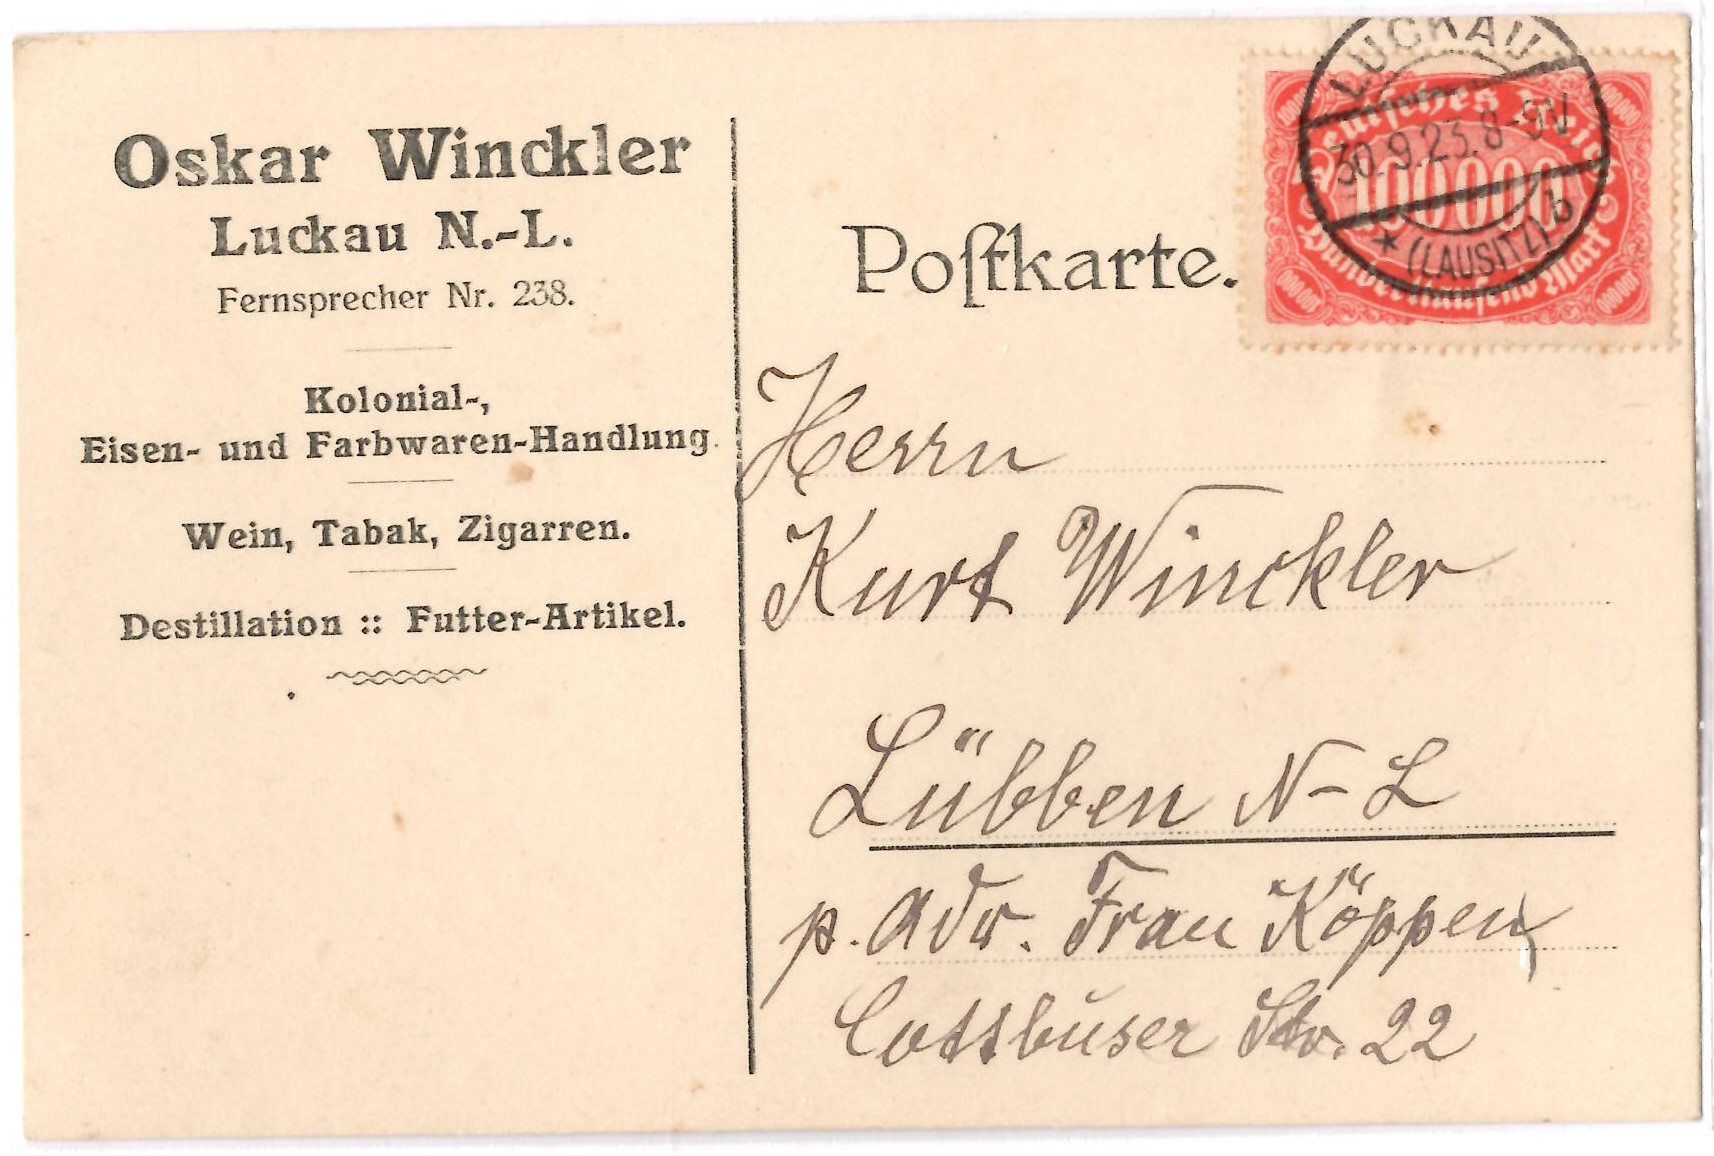 Oskar Winckler
Luckau N.-L.
Fernsprecher Nr. 238.
Kolonial-,
Eisen- und Farbwaren-Handlung.
Wein, Tabak, Zigarren.
Destillation :: Futter-Artikel.
Poſtkarte.
LUCKAU
30.9.23.8-9N
* (LAUSITZ) b
Deutſches Reich
100000
Hunderttauſend Mark
Herrn
Kurt Winckler
Lübben N-L
p. Adr. Frau Köppen
Cottbuser Str. 22